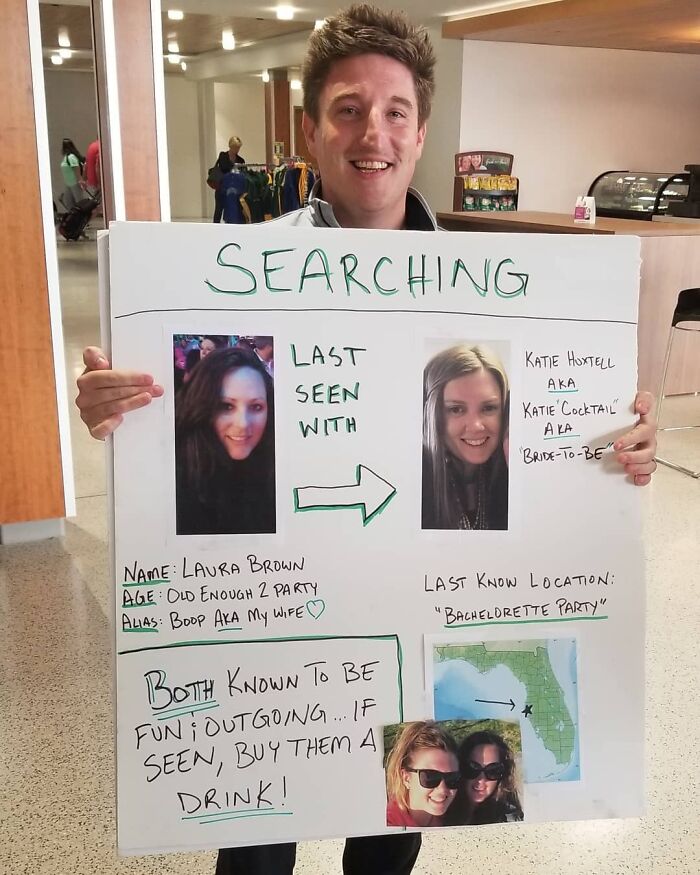 SEARCHING
LAST
SEEN
WITH
KATIE HUXTELL
AKA
KATIE "COCKTAIL"
AKA
"BRIDE-TO-BE"
NAME: LAURA BROWN
AGE: OLD ENOUGH 2 PARTY
ALIAS: BOOP AKA MY WIFE♡
LAST KNOW LOCATION:
"BACHELORETTE PARTY"
BOTH KNOWN TO BE
FUN & OUTGOING... IF
SEEN, BUY THEM A
DRINK!